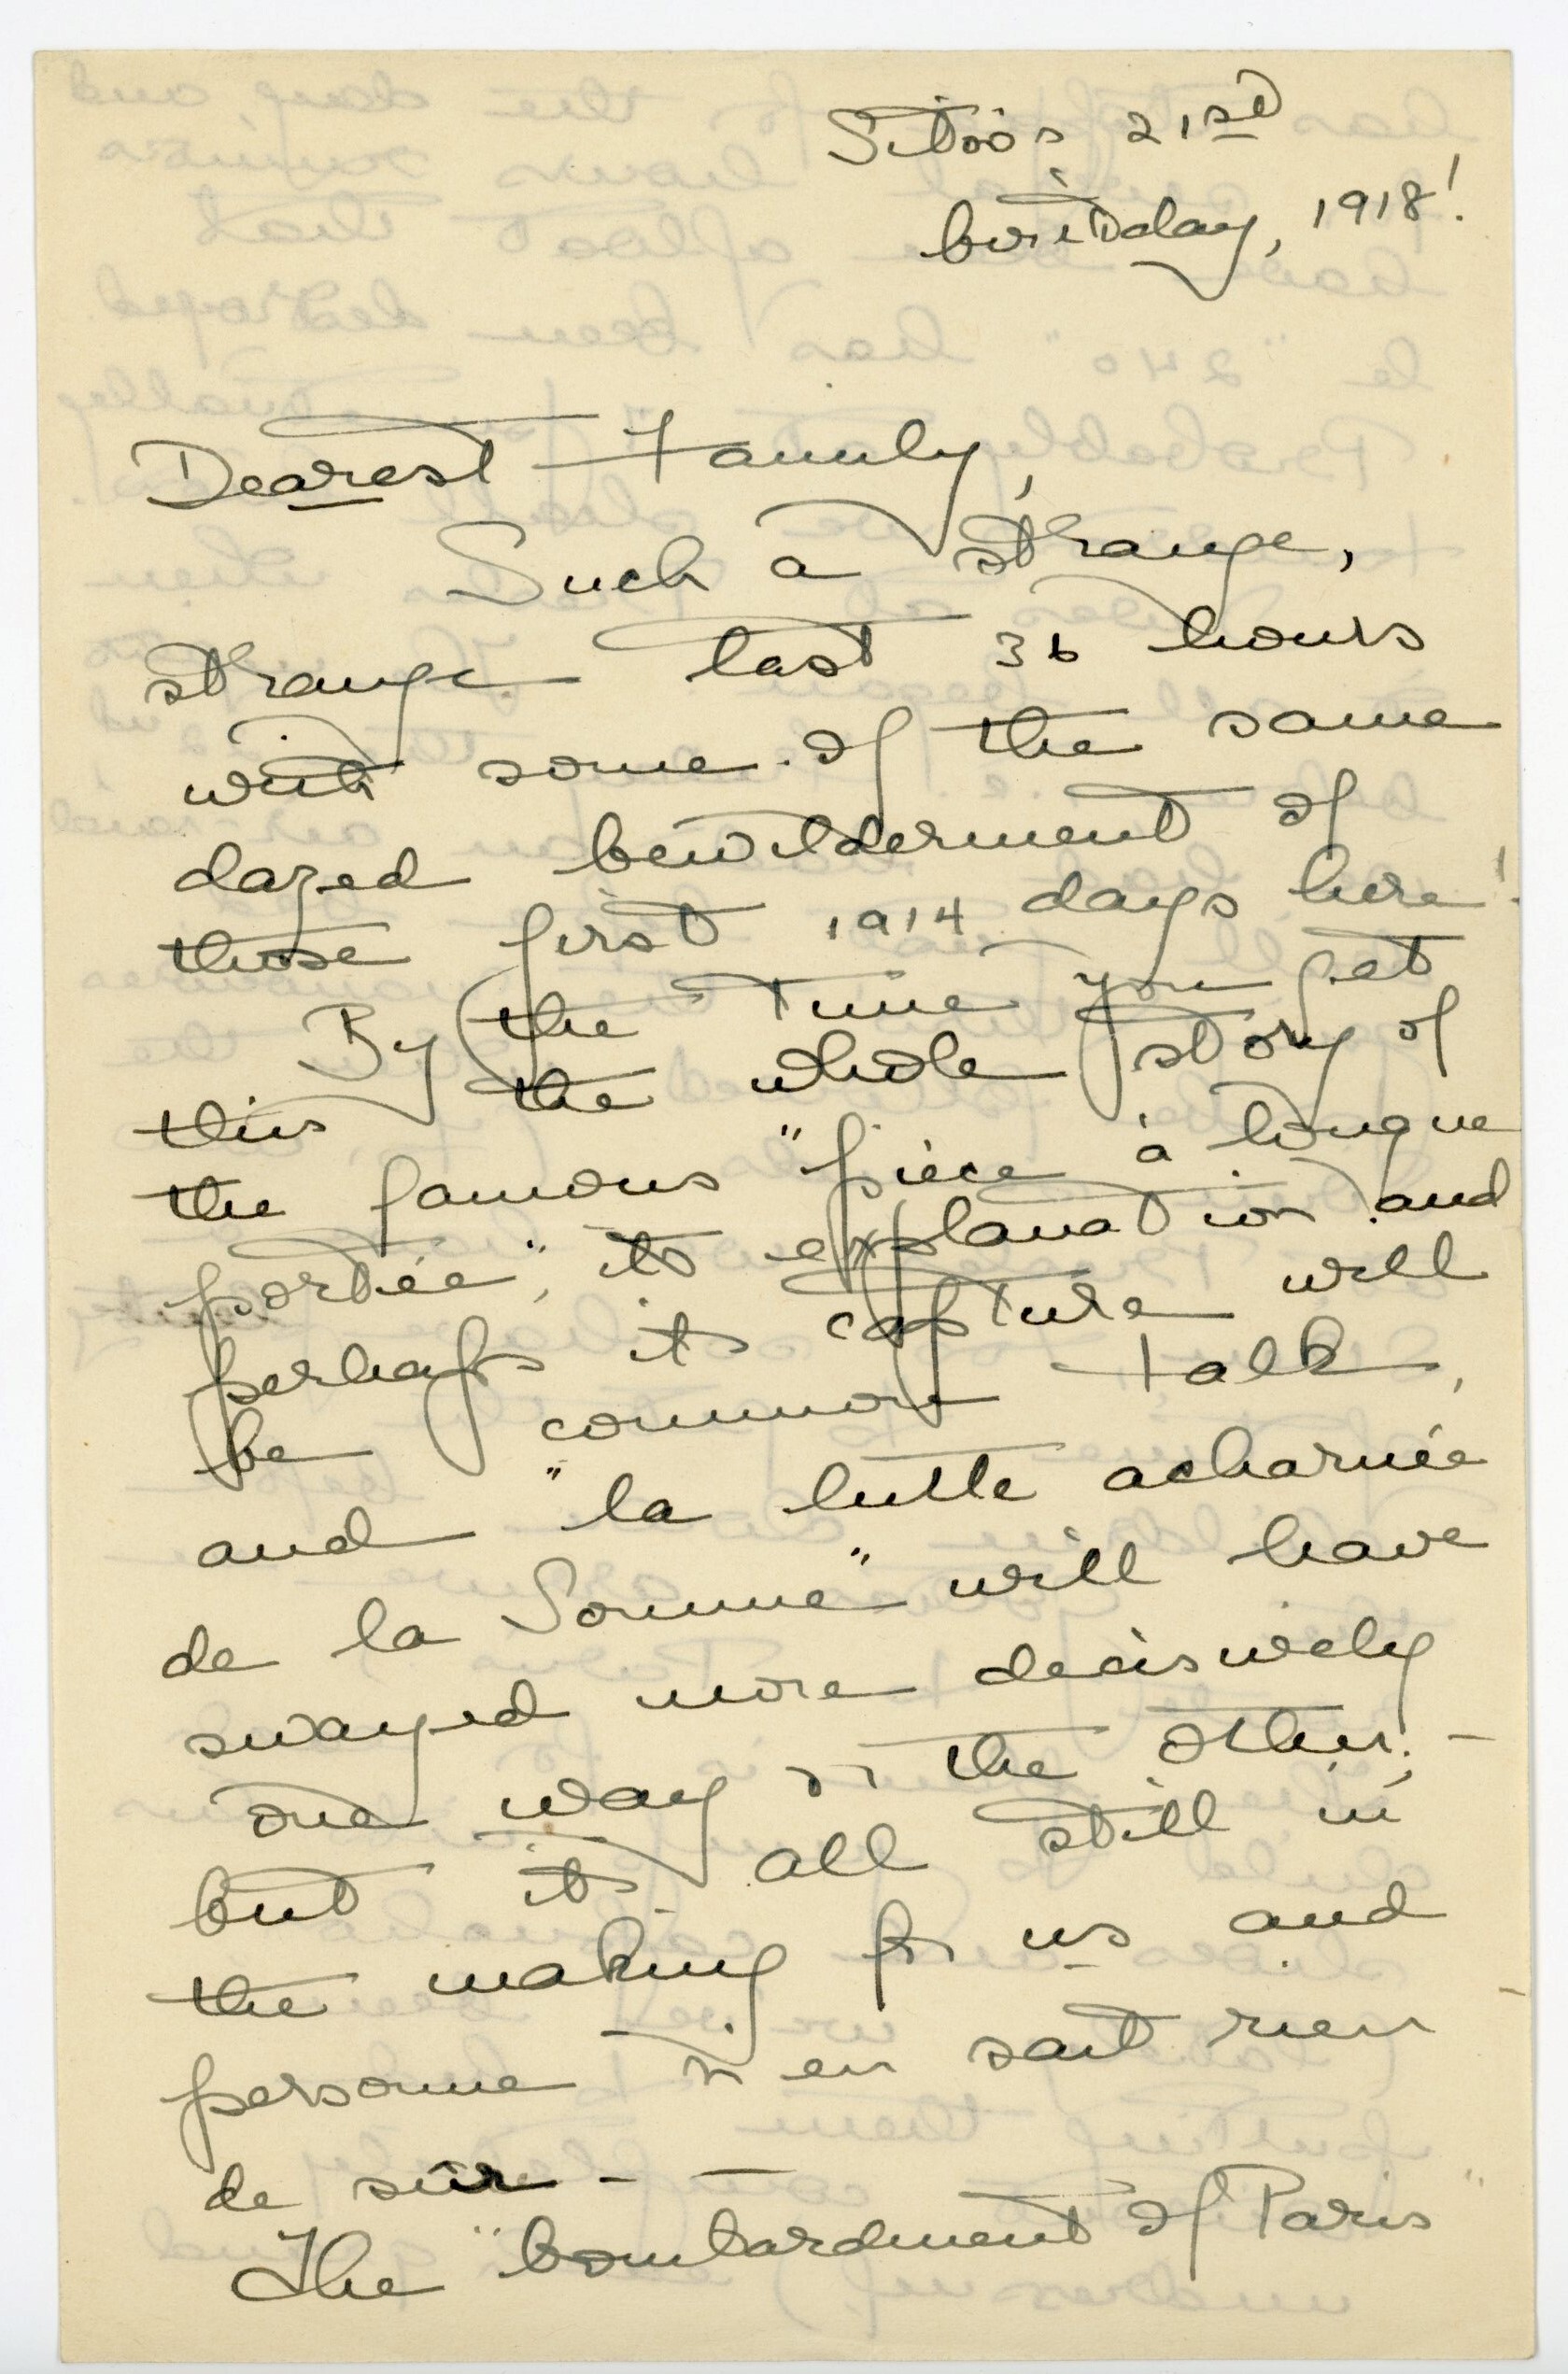 21st
birthday, 1918!
Dearest Family,
Such a strange,
strange last 36 hours
with some of the same
dazed bewilderment of
those first 1914 days here!
By the time you get
this the whole story of
the famous "pièce à longue
portée", its explanation and
perhaps its capture will
be common talk,
and "la lutte acharnée
de la Somme" will have
swayed more decisively
one way or the other; -
but its all still in
the making for us and
personne n'en sait rien
de sûr -
The "bombardment of Paris"